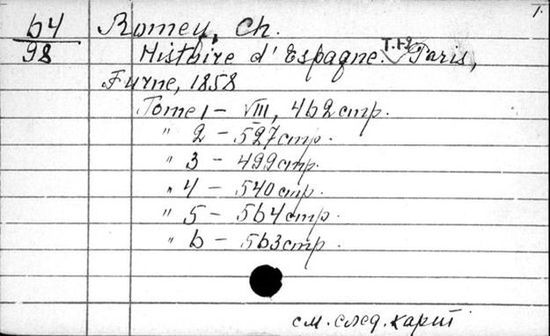 1.
64/98 Romey, Ch.
Histoire d'Espagne. T.1-9 Paris,
Furne, 1858
Tome 1 – VIII, 462 стр.
" 2 – 527 стр.
" 3 – 499 стр.
" 4 – 540 стр.
" 5 – 564 стр.
" 6 – 563 стр.
см. след. карт